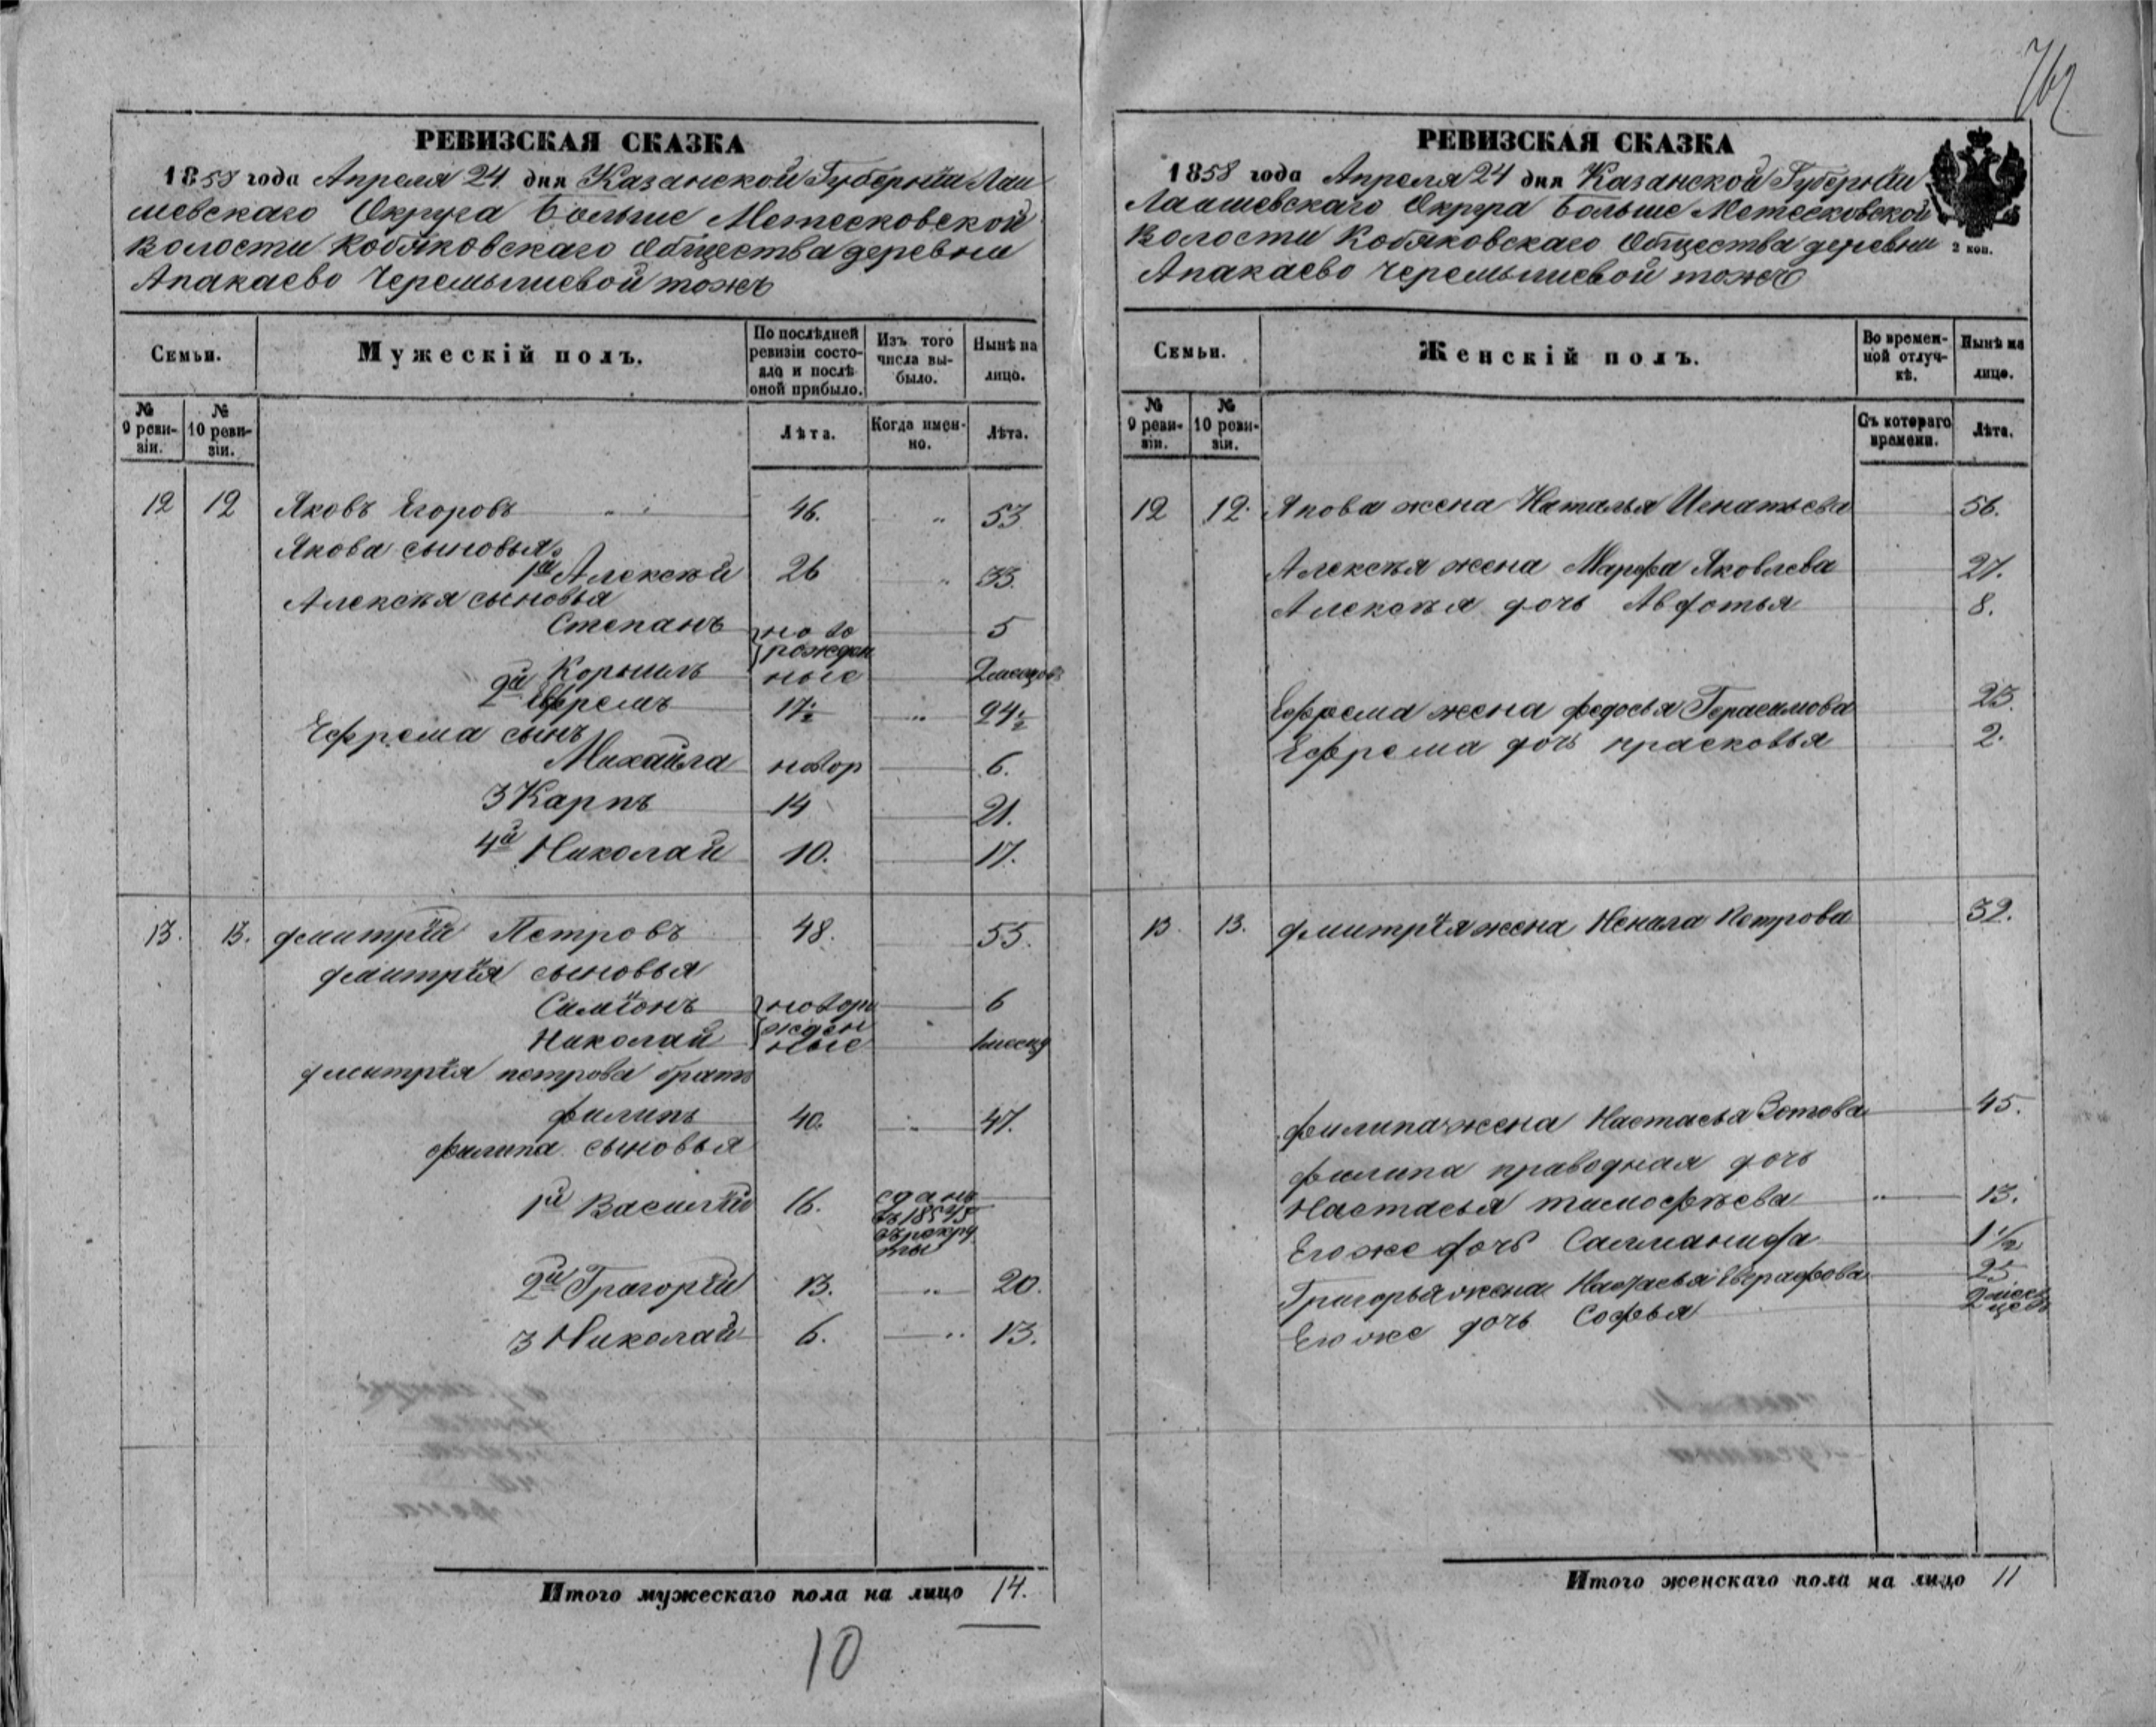 762
РЕВИЗСКАЯ СКАЗКА
1858 года Апреля 24 дня Казанской Губерніи Лаи
шевскаго Округа Больше Метесковской
волости Кобяковскаго Общества деревни
Апакаево Черемышевой тожъ
Семьи.
Мужескій полъ.
По послѣдней
ревизіи состо-
яло и послѣ
оной прибыло.
Изъ того
числа вы-
было.
Нынѣ на
лицо.
№
9 реви-
зіи.
№
10 реви-
зіи.
Лѣта.
Когда имен-
но.
Лѣта.
12 12 Яковъ Егоровъ 46. " 53
Якова сыновья
1й Алексѣй 26 " 33.
Алексѣя сыновья
Степанъ ново 5
рожден
Корнилъ ные 2 месецов
2й Ефремъ 17½ " 24½
Ефрема сынъ
Михайла новор 6.
3 Карпъ 14 21.
4й Николай 10. 17.
13. 13. Дмитрій Петровъ 48. 55.
Дмитрія сыновья
Симіонъ новоро 6
жден
Николай ные 1 месец
Дмитрія петрова братъ
Филипъ 40. " 47.
Филипа сыновья
1й Василій 16. сданъ
въ 1854
въ рекру
ты
2й Григорій 13. " 20.
3 Николай 6. " 13.
Итого мужескаго пола на лицо 14.
10
РЕВИЗСКАЯ СКАЗКА
1858 года Апреля 24 дня Казанской Губерніи
Лаишевскаго Округа Больше Метесковской
Волости Кобяковскаго Общества деревни
Апакаево Черемышевой тожъ
2 коп.
Семьи.
Женскій полъ.
Во времен-
ной отлуч-
кѣ.
Нынѣ на
лицо.
№
9 реви-
зіи.
№
10 реви-
зіи.
Съ котораго
времени.
Лѣта.
12 12. Якова жена Наталья Игнатьева 56.
Алексѣя жена Марфа Яковлева 27.
Алексѣя дочь Авдотья 8.
Ефрема жена Федосья Герасимова 23.
Ефрема дочь прасковья 2.
13. 13. Дмитрія жена Ненила Петрова 39.
Филипа жена Настасья Зотова 45.
Филипа праводная дочь
Настасья тимофѣева " 13.
Его же дочь Саламанида 1½
Григорья жена Настасья Евграфова 25
Его же дочь Софья 2 месе
цовъ
Итого женскаго пола на лицо 11